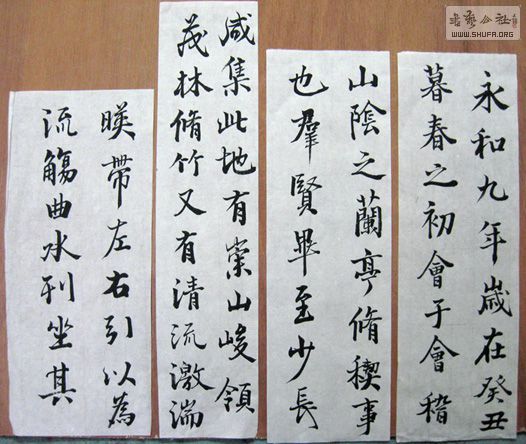 永和九年歲在癸丑
暮春之初會于會稽
山陰之蘭亭脩稧事
也羣賢畢至少長
咸集此地有崇山峻領
茂林脩竹又有清流激湍
暎帶左右引以為
流觴曲水列坐其
書藝公社
WWW.SHUFA.ORG